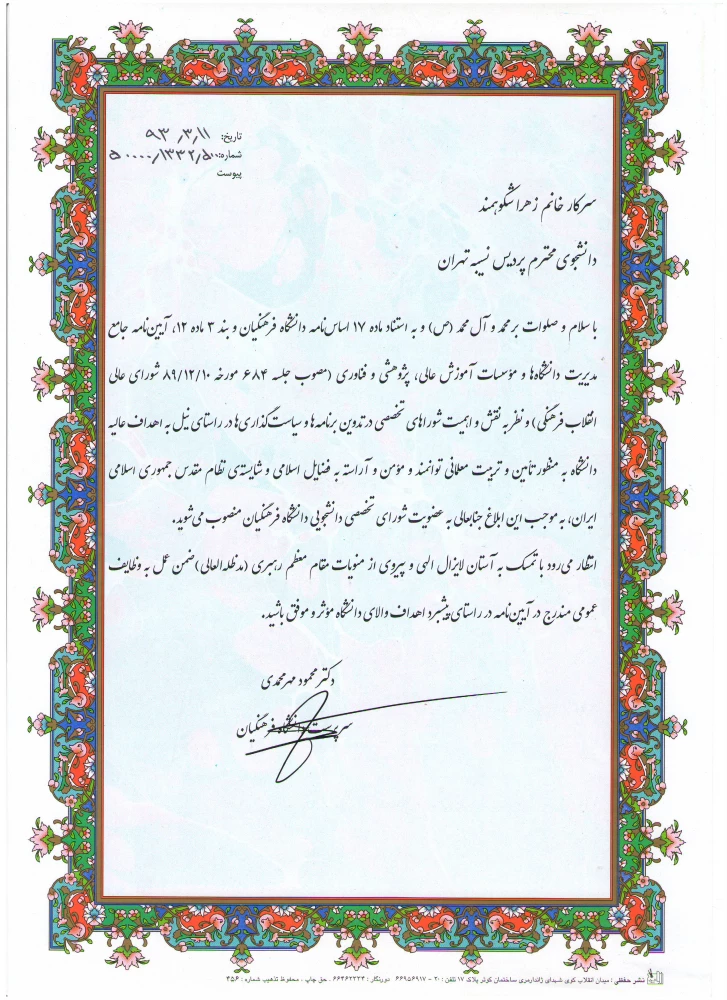 تاریخ: ۹۳/۳/۱۱
شماره: ۵۰۰۰۰/۱۳۳۲/۵۰۰
پیوست
سرکار خانم زهرا شکوهمند
دانشجوی محترم پردیس نسیبه تهران
با سلام و صلوات بر محمد و آل محمد (ص) و به استناد ماده ۱۷ اساس‌نامه دانشگاه فرهنگیان و بند ۳ ماده ۱۲، آیین‌نامه جامع
مدیریت دانشگاه‌ها و مؤسسات آموزش عالی، پژوهشی و فناوری (مصوب جلسه ۶۸۴ مورخه ۸۹/۱۲/۱۰ شورای عالی
انقلاب فرهنگی) و نظر به نقش و اهمیت شوراهای تخصصی در تدوین برنامه‌ها و سیاست‌گذاری‌ها در راستای نیل به اهداف عالیه
دانشگاه به منظور تأمین و تربیت معلمانی توانمند و مؤمن و آراسته به فضایل اسلامی و شایسته‌ی نظام مقدس جمهوری اسلامی
ایران، به موجب این ابلاغ جنابعالی به عضویت شورای تخصصی دانشجویی دانشگاه فرهنگیان منصوب می‌شوید.
انتظار می‌رود با تمسک به آستان لایزال الهی و پیروی از منویات مقام معظم رهبری (مدظله‌العالی) ضمن عمل به وظایف
عمومی مندرج در آیین‌نامه در راستای پیشبرد اهداف والای دانشگاه مؤثر و موفق باشید.
دکتر محمود مهرمحمدی
سرپرست دانشگاه فرهنگیان
نشر حفظی : میدان انقلاب کوی شهدای ژاندارمری ساختمان کوثر پلاک ۱۷ تلفن : ۲۰ - ۶۶۹۵۶۹۱۷ دورنگار : ۶۶۴۶۲۲۳۴ . حق چاپ . محفوظ تذهیب شماره : ۳۵۶